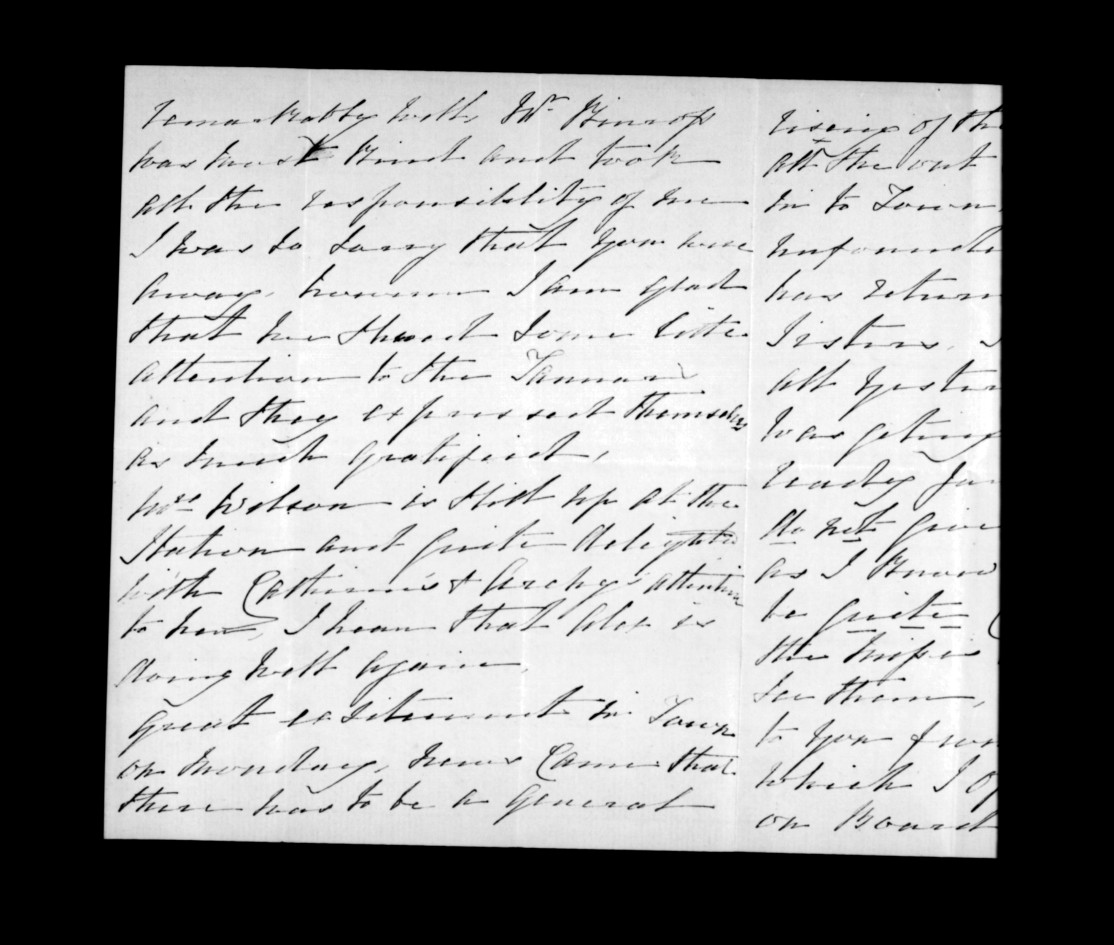 remarkably well, Mr.
was most Kind and took
all the responsibility of me
I was so sorry that you were
away, however I am glad
that he showed some little
attention to the
and they expressed themselves
as much gratified,
Mrs Wilson is still up at the
Station and quite delighted
with Catherine's & Archy's attention
to her, I hear that Alex is
doing well again,
great exsitement in Town
on Monday, news Came that
there was to be a general
rising of the
all the out
in to Town,
has return
Sisters,
all yester
was geting
ready
do not give
as I Know
be quite
the
see them,
to you
which I
on Board